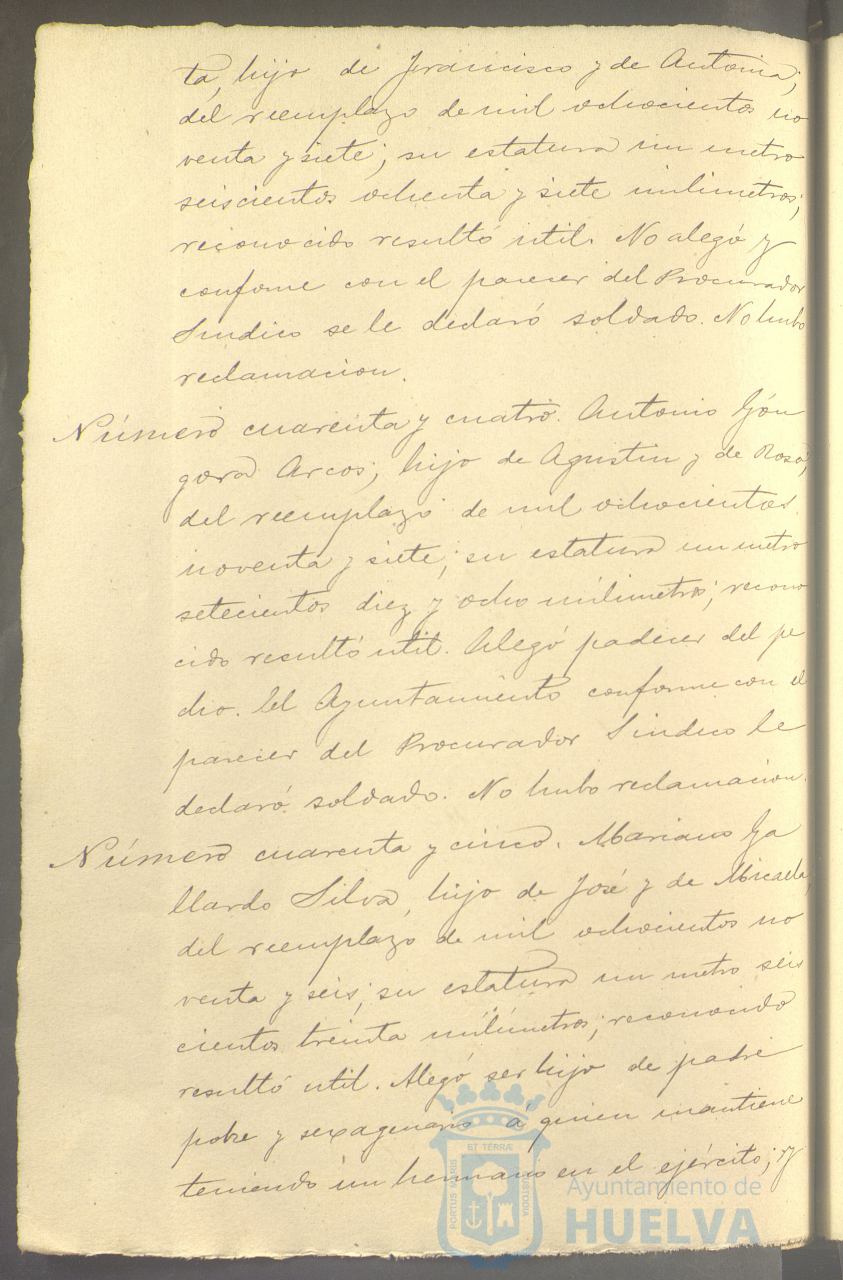 ta, hijo de Francisco y de Antonia;
del reemplazo de mil ochocientos no
venta y siete; su estatura un metro
seiscientos ochenta y siete milimetros;
reconocido resultó util. No alegó y
conforme con el parecer del Procurador
Sindico se le declaró soldado. No hubo
reclamacion.
Número cuarenta y cuatro. Antonio Gón
gora Arcos; hijo de Agustin y de Rosa,
del reemplazo de mil ochocientos
noventa y siete; su estatura un metro
setecientos diez y ocho milimetros; recono
cido resultó util. Alegó padecer del pe
cho. El Ayuntamiento conforme con el
parecer del Procurador Sindico le
declaró soldado. No hubo reclamacion.
Número cuarenta y cinco. Mariano Ga
llardo Silva, hijo de José y de Micaela,
del reemplazo de mil ochocientos no
venta y seis; su estatura un metro seis
cientos treinta milimetros; reconocido
resultó util. Alegó ser hijo de padre
pobre y sexagenario á quien mantiene
teniendo un hermano en el ejército; y
PORTUS MARIS ET TERRÆ CUSTODIA
Ayuntamiento de
HUELVA